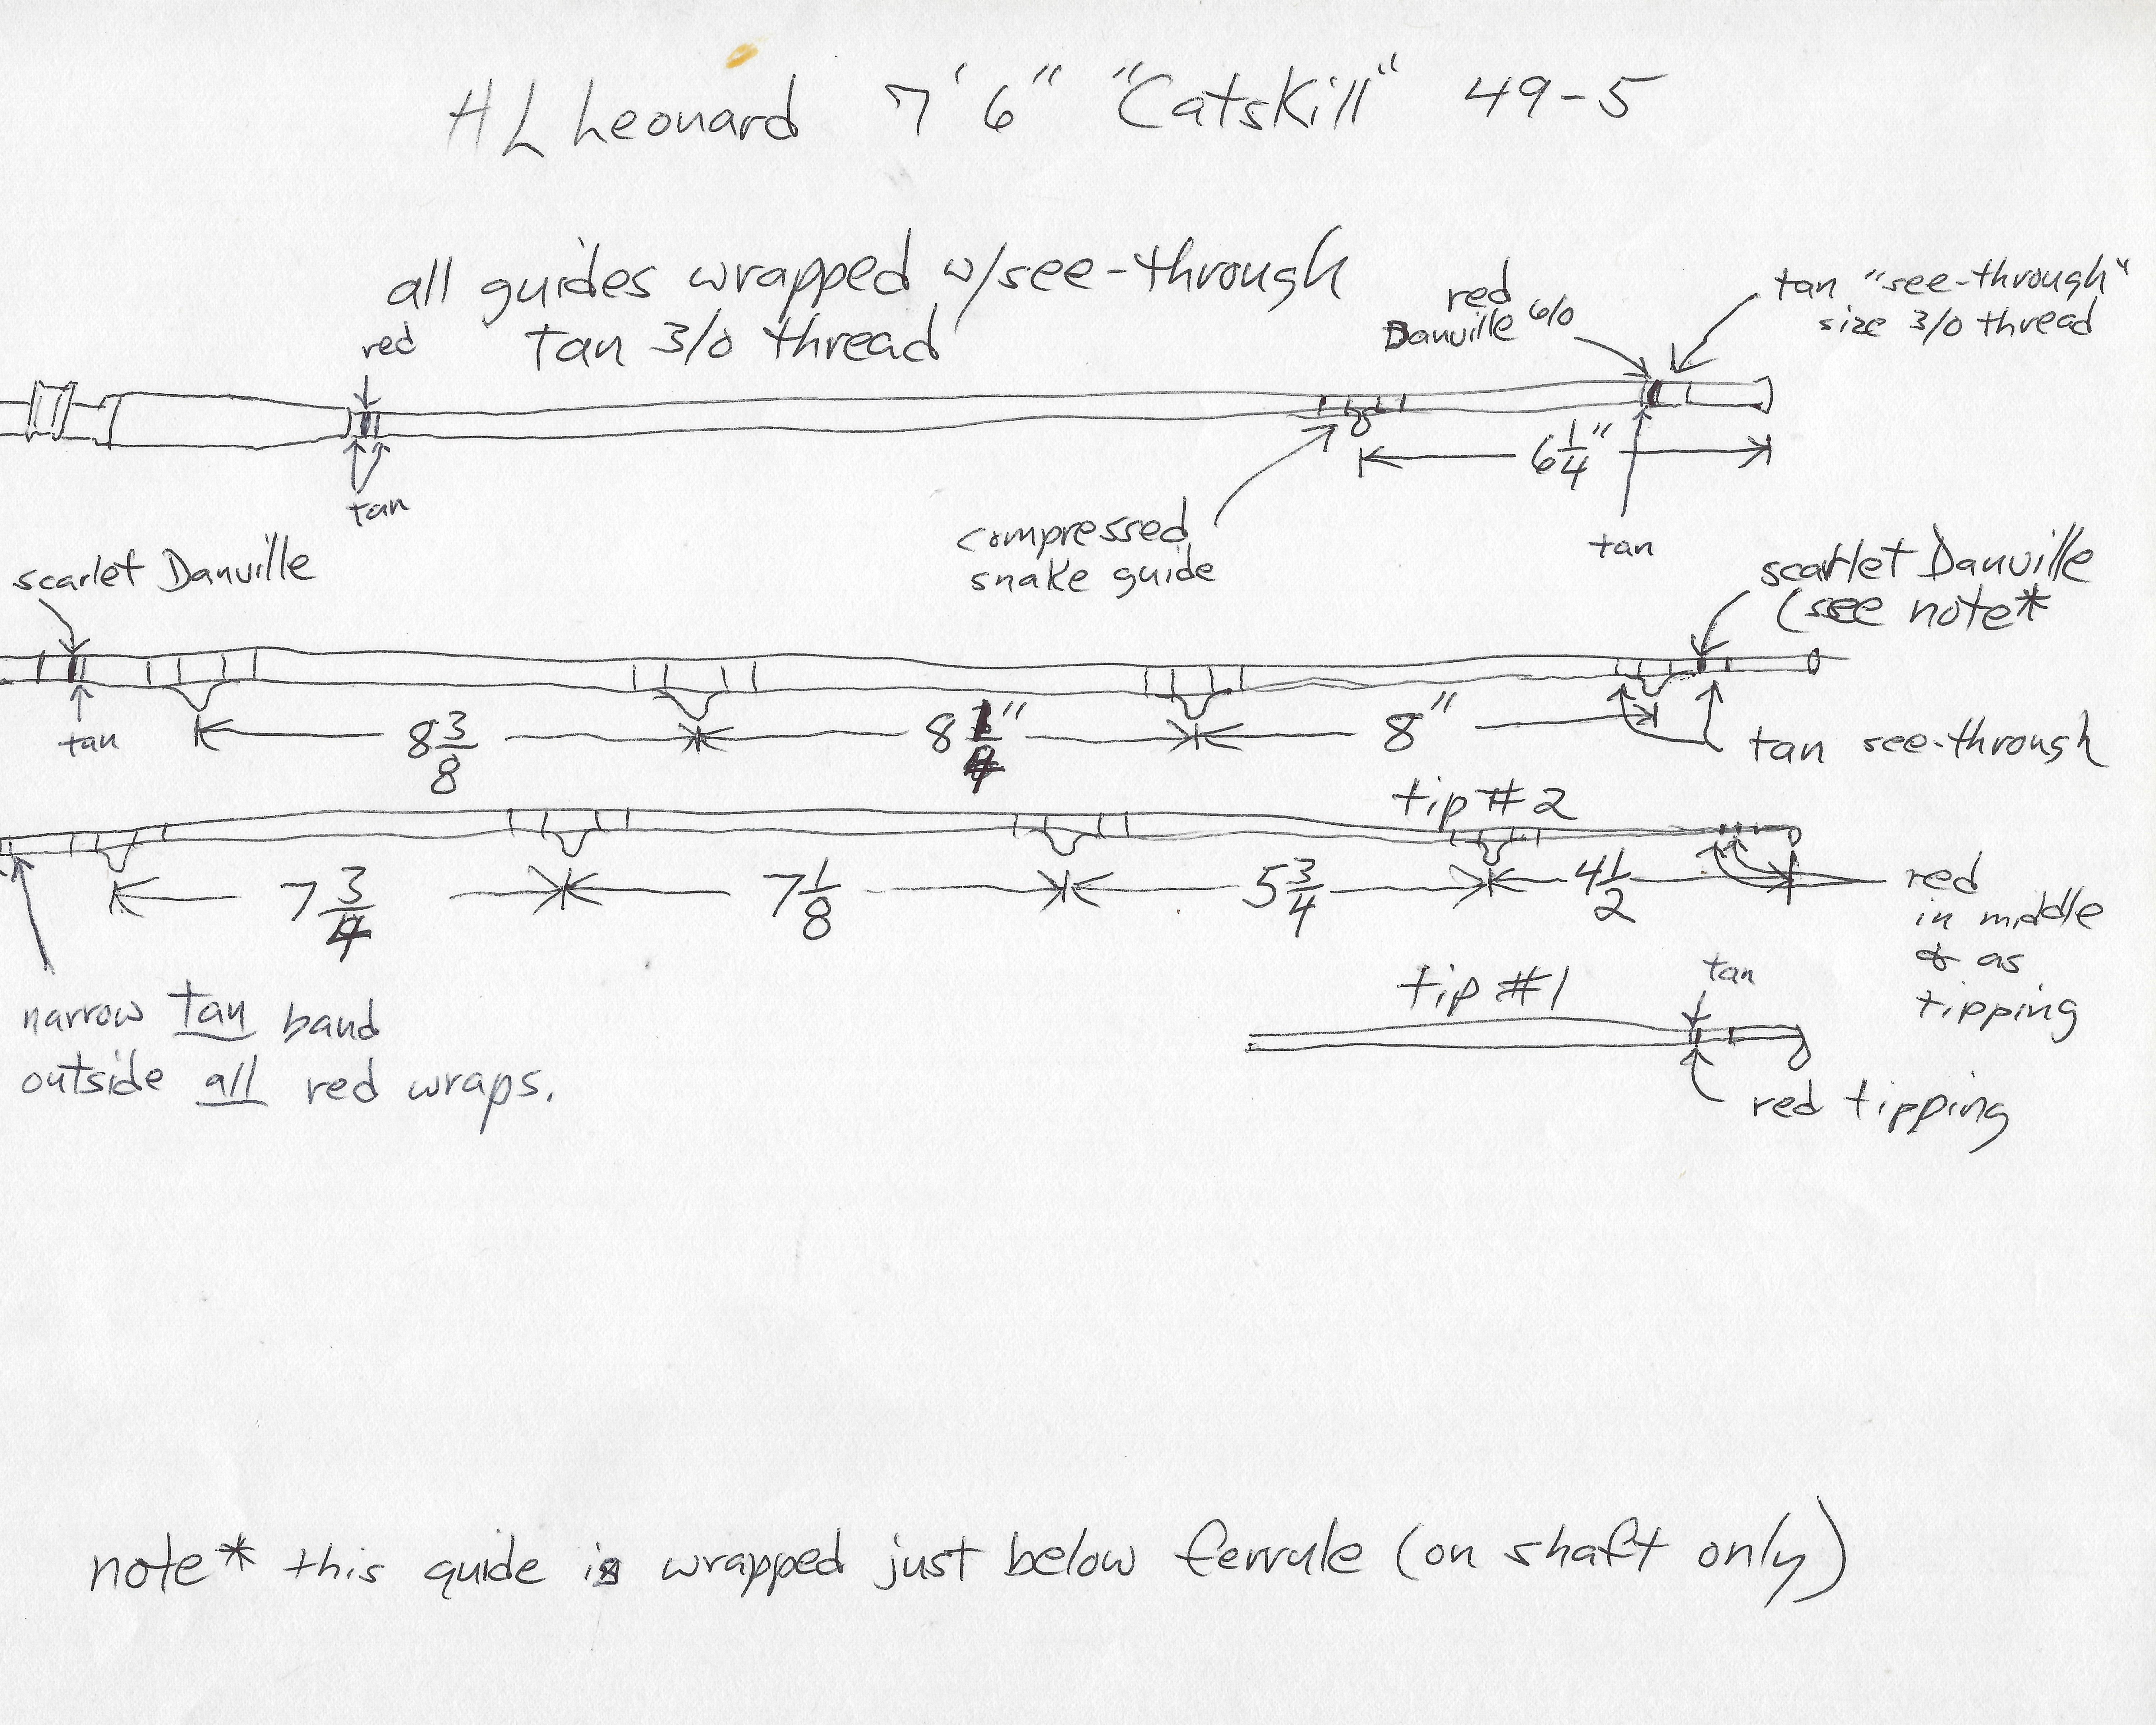 HL Leonard 7'6" "Catskill" 49-5
all guides wrapped w/see-through
tan 3/0 thread
red
red
Danville 6/0
tan "see-through"
size 3/0 thread
6 1/4"
tan
tan
compressed
snake guide
scarlet Danville
scarlet Danville
(see note*
tan
8 3/8
8"
tan see-through
tip #2
7 3/4
7 1/8
5 3/4
4 1/2
red
in middle
& as
tipping
narrow tan band
outside all red wraps.
tip #1
tan
red tipping
note* this guide is wrapped just below ferrule (on shaft only)